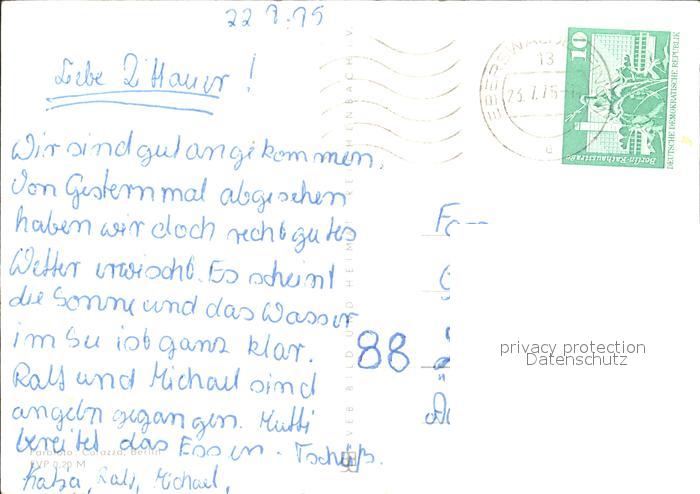 22.7.75
Liebe Zittauer!
Wir sind gut angekommen.
Von Gestern mal abgesehen
haben wir doch recht gutes
Wetter erwischt. Es scheint
die Sonne und das Wasser
im See ist ganz klar.
Ralf und Michael sind
angeln gegangen. Mutti
bereitet das Essen. Tschüß.
Katja, Ralf, Michael,
Farbfoto: Corazza, Berlin
EVP 0,20 M
VEB BILD UND HEIMAT REICHENBACH V.
88
EBERSWALDE
13
23.7.75
10
DEUTSCHE DEMOKRATISCHE REPUBLIK
Berlin, Rathausstraße
privacy protection
Datenschutz